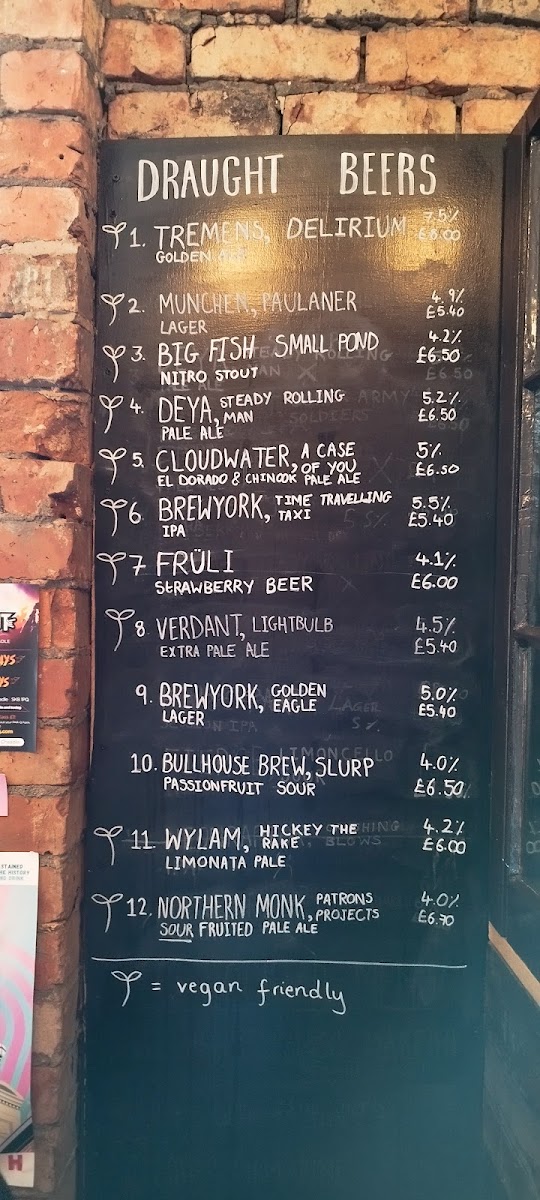 DRAUGHT BEERS
1. TREMENS, DELIRIUM 7.5%
GOLDEN ALE £6.00
2. MUNCHEN, PAULANER 4.9%
LAGER £5.40
3. BIG FISH SMALL POND 4.2%
NITRO STOUT £6.50
4. DEYA, STEADY ROLLING MAN 5.2%
PALE ALE £6.50
5. CLOUDWATER, A CASE OF YOU 5%
EL DORADO & CHINOOK PALE ALE £6.50
6. BREWYORK, TIME TRAVELLING TAXI 5.5%
IPA £5.40
7 FRÜLI 4.1%
STRAWBERRY BEER £6.00
8 VERDANT, LIGHTBULB 4.5%
EXTRA PALE ALE £5.40
9. BREWYORK, GOLDEN EAGLE 5.0%
LAGER £5.40
10. BULLHOUSE BREW, SLURP 4.0%
PASSIONFRUIT SOUR £6.50
11 WYLAM, HICKEY THE RAKE 4.2%
LIMONATA PALE £6.00
12. NORTHERN MONK, PATRONS PROJECTS 4.0%
SOUR FRUITED PALE ALE £6.70
= vegan friendly
H